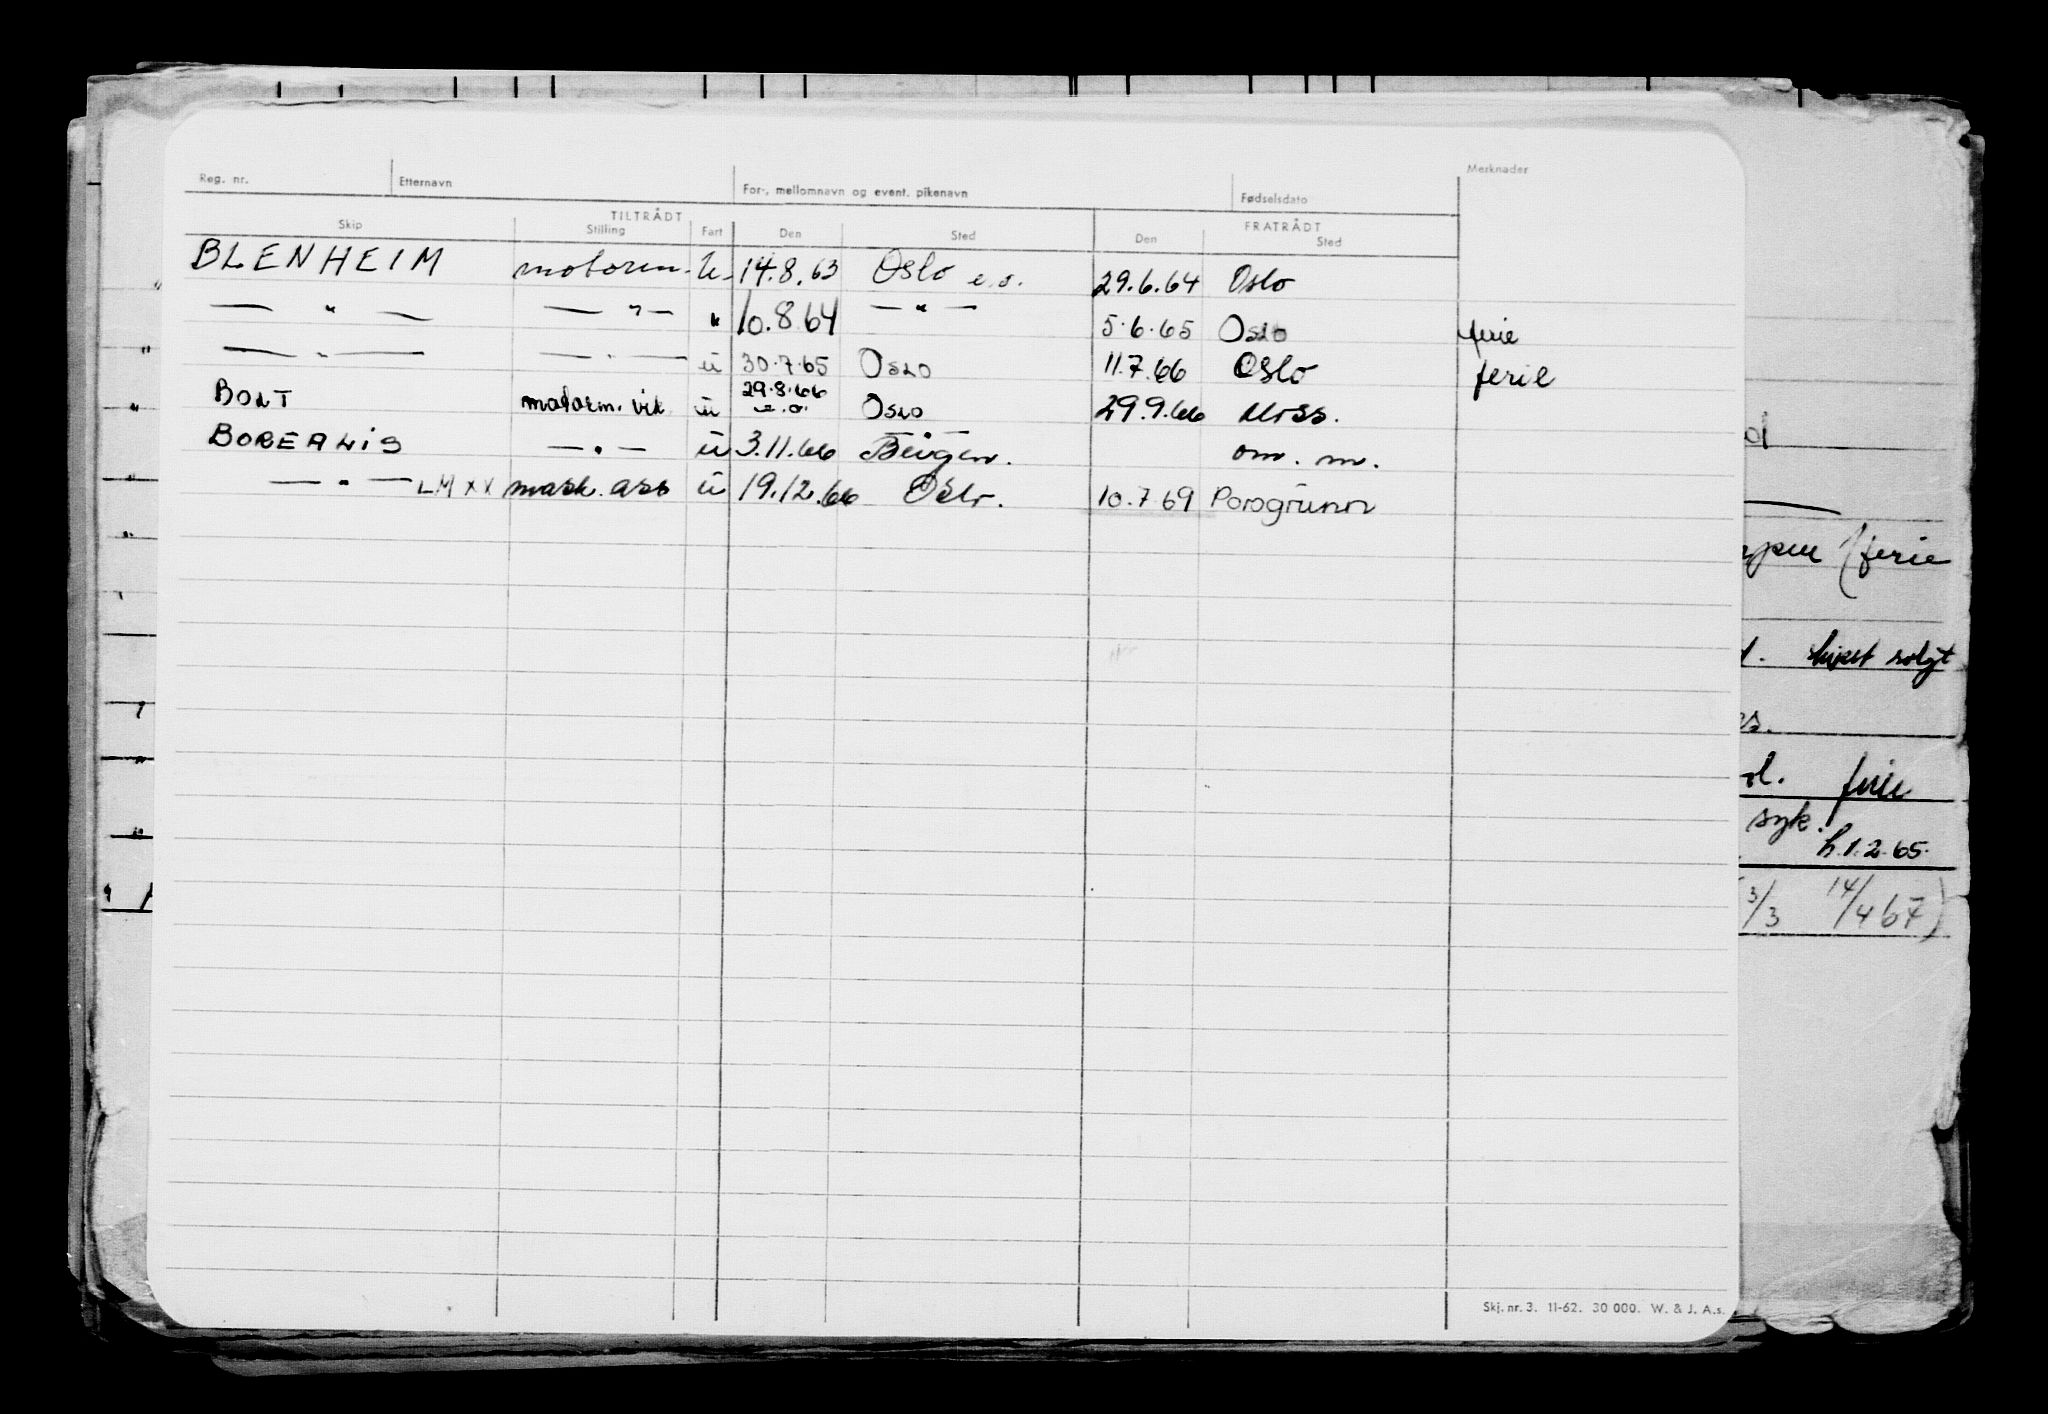 Reg. nr. Etternavn For-, mellomnavn og event. pikenavn Fødselsdato Merknader
TILTRÅDT FRATRÅDT
Skip Stilling Fart Den Sted Den Sted
BLENHEIM motorm. U. 14.8.63 Oslo e.o. 29.6.64 Oslo
— " — — " — " 10.8.64 — " — 5.6.65 Oslo ferie
— " — — " — u 30.7.65 Oslo 11.7.66 Oslo ferie
BOLT motorm. vik. u 29.8.66 e.o. Oslo 29.9.66 Moss.
BOREALIS — " — u 3.11.66 Bergen. om. m.
— " — LMXX mask. ass u 19.12.66 Oslo. 10.7.69 Porsgrunn
ferie
solgt
ferie
syk.
h.1.2.65.
3/3 14/4 67)
Skj. nr. 3. 11-62. 30 000. W. & J. A.s.